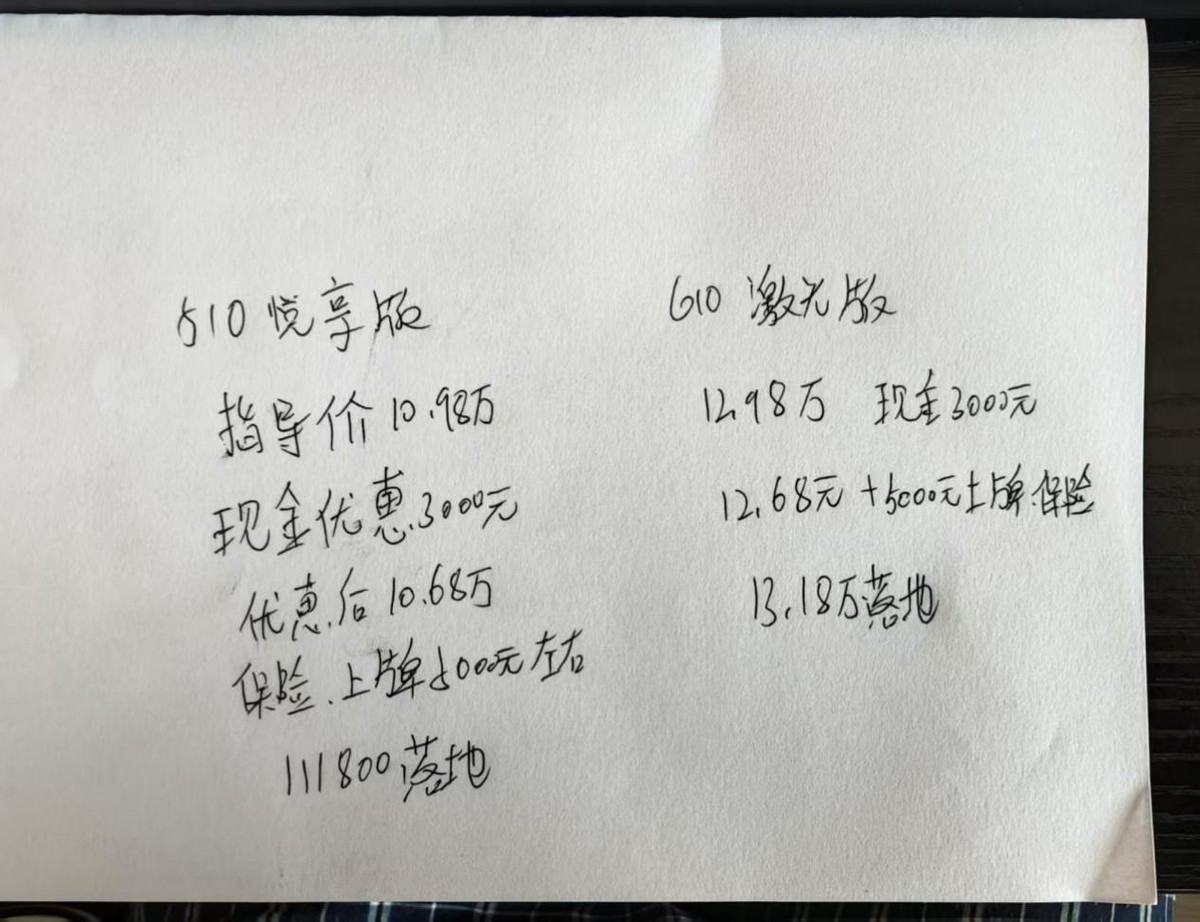 510 悦享版
指导价 10.98万
现金优惠.3000元
优惠后 10.68万
保险.上牌 5000元左右
111800 落地
610 激光版
12.98万 现金3000元
12.68元 +5000元上牌.保险
13.18万落地